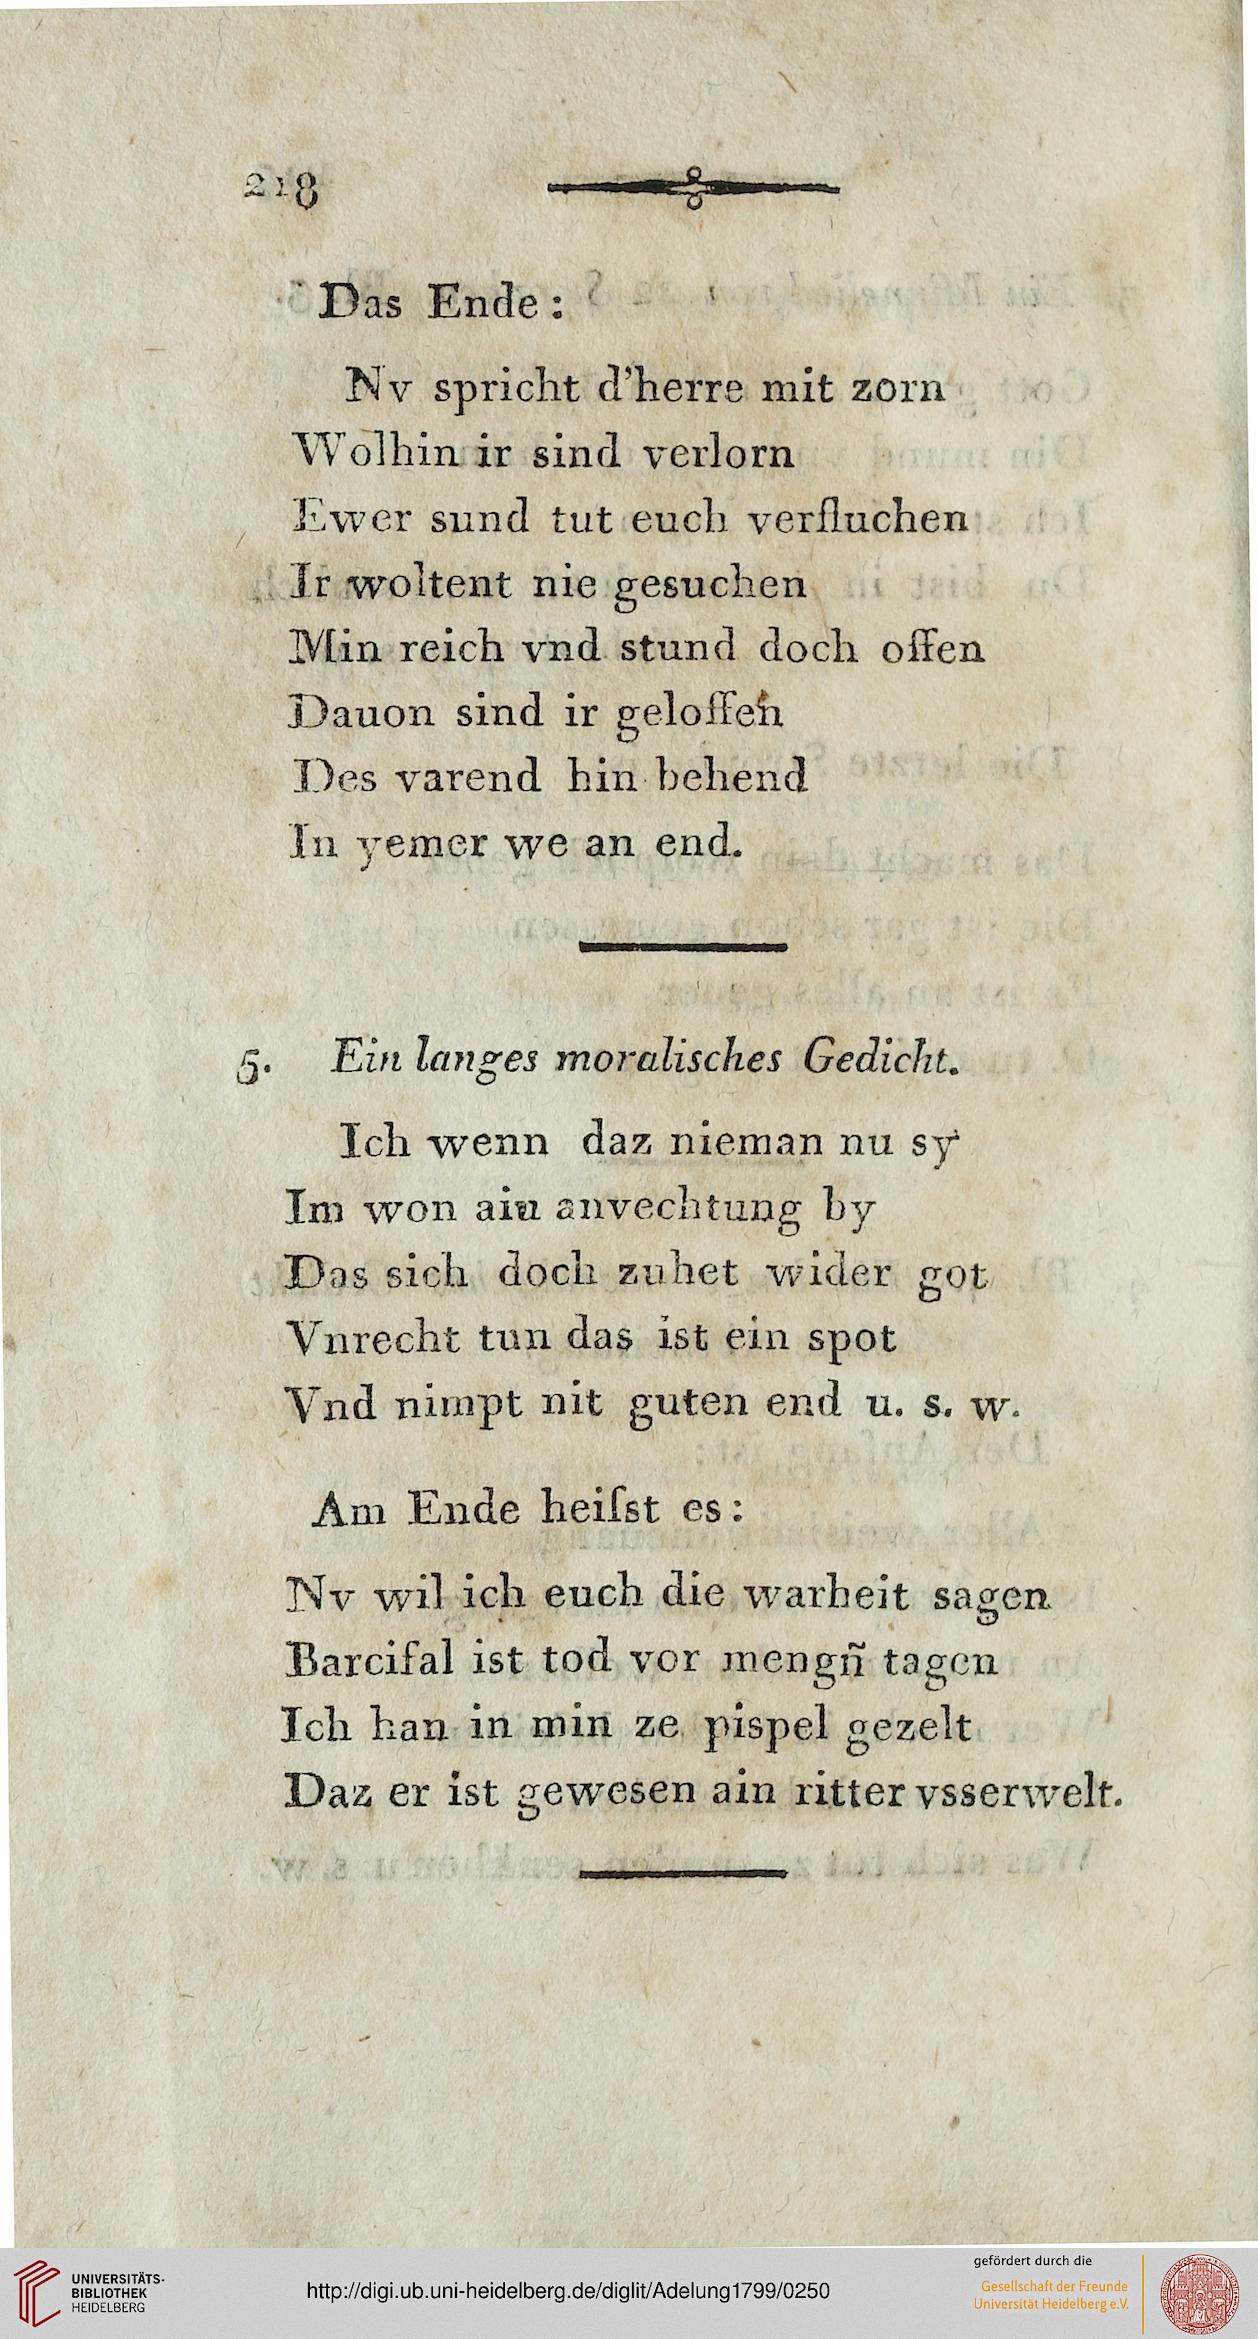 218
Das Ende:
Nv spricht d'herre mit zorn
Wolhin ir sind verlorn
Ewer sund tut euch verfluchen
Ir woltent nie gesuchen
Min reich vnd stund doch offen
Dauon sind ir geloffen
Des varend hin behend
In yemer we an end.
5. Ein langes moralisches Gedicht.
Ich wenn daz nieman nu sy
Im won ain anvechtung by
Das sich doch zuhet wider got
Vnrecht tun das ist ein spot
Vnd nimpt nit guten end u. s. w.
Am Ende heiſst es:
Nv wil ich euch die warheit sagen
Barcifal ist tod vor mengn̄ tagen
Ich han in min ze pispel gezelt
Daz er ist gewesen ain ritter vsserwelt.
UNIVERSITÄTS-
BIBLIOTHEK
HEIDELBERG
http://digi.ub.uni-heidelberg.de/diglit/Adelung1799/0250
gefördert durch die
Gesellschaft der Freunde
Universität Heidelberg e.V.